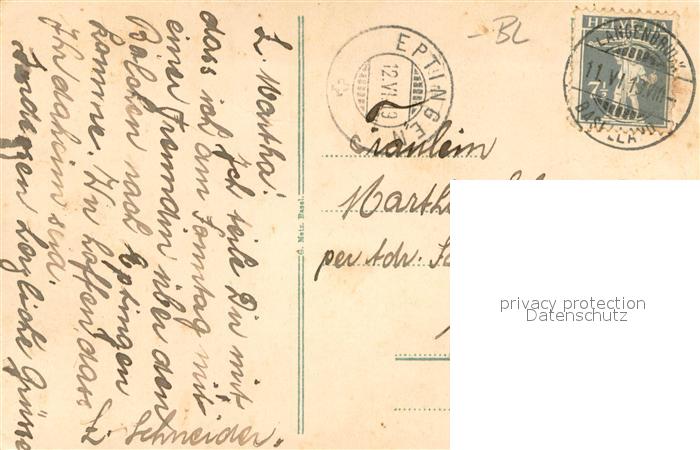 L. Martha!
Ich teile Dir mit
dass ich am Sonntag mit
einer Freundin über den
Bölchen nach Eptingen
komme. Zu hoffen dass
Ihr daheim seid.
Indessen herzliche Grüsse
L. Schneider.
G. Metz, Basel.
- BL
EPTINGEN
12.VI.13
HELVETIA
7½
LANGENBRUCK
11.VI.13
Fräulein
Martha
per Adr.
privacy protection
Datenschutz